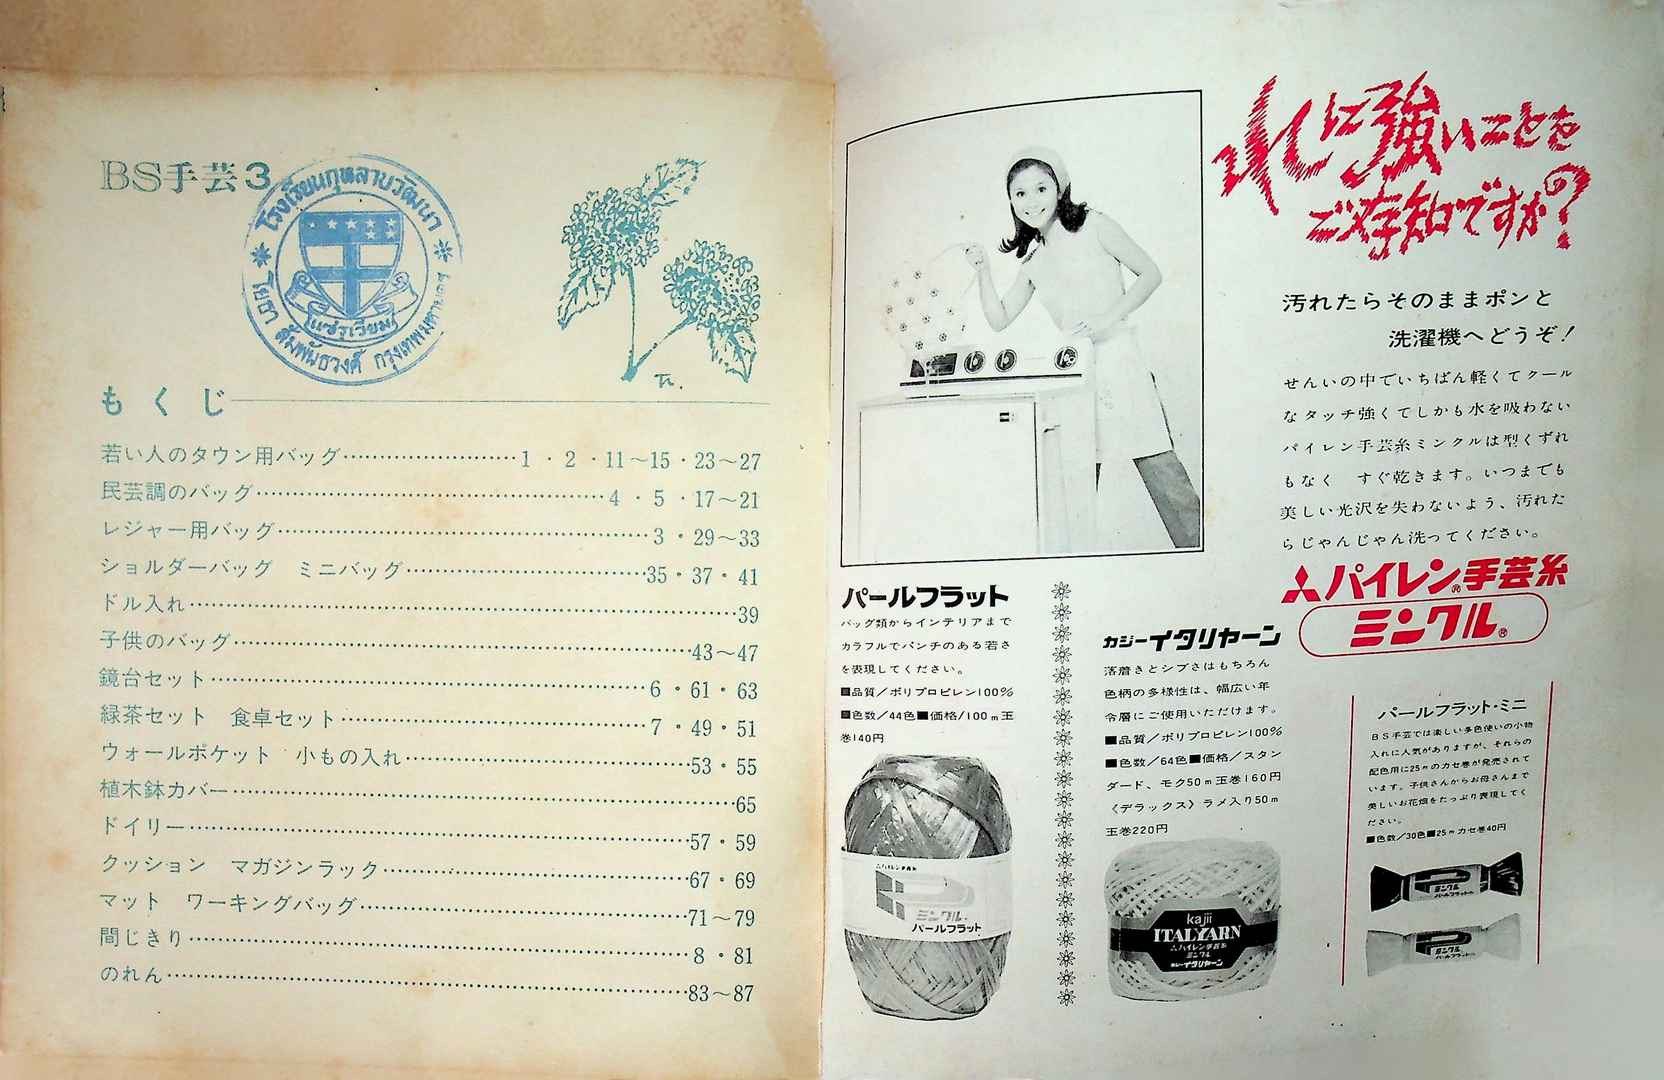 BS手芸3
โรงเรียนกุหลาบวัฒนา
แซ่รเวียม
โยธา สัมพันธวงศ์ กรุงเทพมหานคร
もくじ
若い人のタウン用バッグ……………………1・2・11〜15・23〜27
民芸調のバッグ……………………4・5・17〜21
レジャー用バッグ……………………3・29〜33
ショルダーバッグ ミニバッグ……………………35・37・41
ドル入れ……………………39
子供のバッグ……………………43〜47
鏡台セット……………………6・61・63
緑茶セット 食卓セット……………………7・49・51
ウォールポケット 小もの入れ……………………53・55
植木鉢カバー……………………65
ドイリー……………………57・59
クッション マガジンラック……………………67・69
マット ワーキングバッグ……………………71〜79
間じきり……………………8・81
のれん……………………83〜87
水に強いことを
ご存知ですか?
汚れたらそのままポンと
洗濯機へどうぞ!
せんいの中でいちばん軽くてクール
なタッチ強くてしかも水を吸わない
パイレン手芸糸ミンクルは型くずれ
もなく すぐ乾きます。いつまでも
美しい光沢を失わないよう、汚れた
らじゃんじゃん洗ってください。
パイレン®手芸糸
ミンクル®
パールフラット
バッグ類からインテリアまで
カラフルでパンチのある若さ
を表現してください。
■品質/ポリプロピレン100%
■色数/44色■価格/100m玉
巻140円
パイレン手芸糸
ミンクル®
パールフラット
カジーイタリヤーン
落着きとシブさはもちろん
色柄の多様性は、幅広い年
令層にご使用いただけます。
■品質/ポリプロピレン100%
■色数/64色■価格/スタン
ダード、モク50m玉巻160円
〈デラックス〉ラメ入り50m
玉巻220円
kajii
ITALYARN
パイレン手芸糸
ミンクル
カジーイタリヤーン
パールフラット・ミニ
BS手芸では楽しい多色使いの小物
入れに人気がありますが、それらの
配色用に25mのカセ巻が発売されて
います。子供さんからお母さんまで
美しいお花畑をたっぷり表現してく
ださい。
■色数/30色■25mカセ巻40円
ミンクル
パールフラット
ミンクル
パールフラット